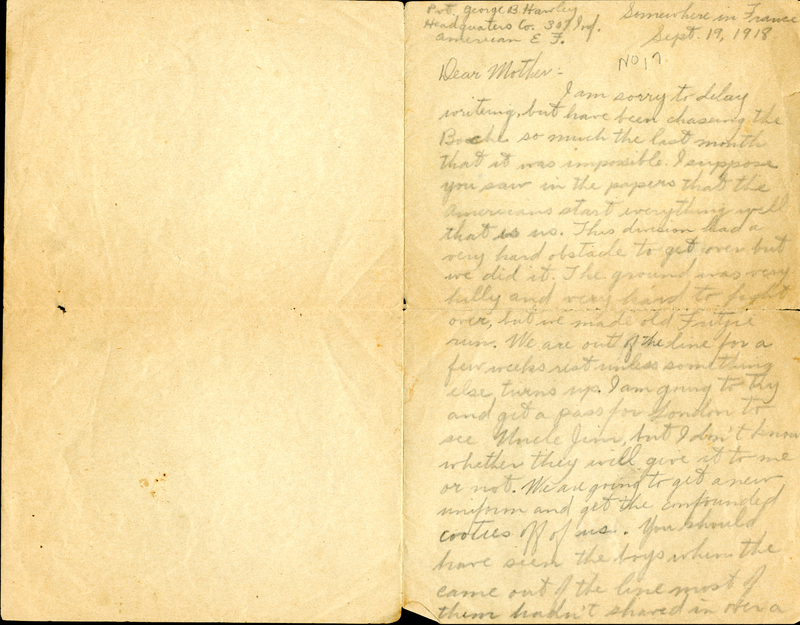 Pvt. George B. Hawley
Headquaters Co. 307 Inf.
American E. F.
Somewhere in France
Sept. 19, 1918
No 17.
Dear Mother:-
I am sorry to delay
writing, but have been chasing the
Boche so much the last month
that it was impossible. I suppose
you saw in the papers that the
Americans start everything well
that is us. This division had a
very hard obstacle to get over but
we did it. The ground was very
hilly and very hard to fight
over, but we made old Fritzie
run. We are out of the line for a
few weeks rest unless something
else turns up. I am going to try
and get a pass for London to
see Uncle Jim, but I don't know
whether they will give it to me
or not. We are going to get a new
uniform and get the confounded
cooties off of us. You should
have seen the boys when the
came out of the line most of
them hadn't shaved in over a